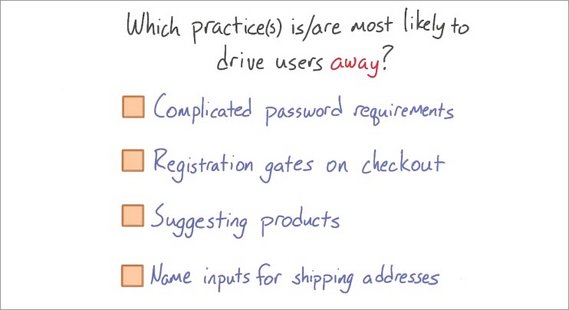 Which practice(s) is/are most likely to
drive users away?
Complicated password requirements
Registration gates on checkout
Suggesting products
Name inputs for shipping addresses